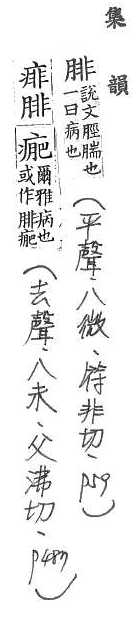 集韻
腓說文脛腨也一曰病也（平聲、八微、符非切、p59）
痱腓𤷂爾雅病也或作腓𤷂（去聲、八未、父沸切、p487）